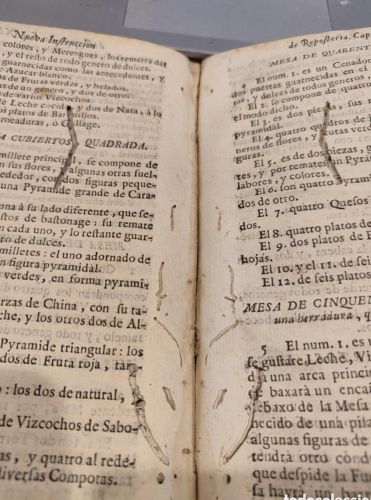 Nueva Instruccion
colores, y Merengues, los remates del
, y el resto de todo genero de dulces.
guarnecidas como las antecedentes, y,
Açucar blanco.
de Frutas verdes, y helados.
os de un genero, y dos de otro.
de varios Vizcochos.
de Leche con y dos de Nata, à lo
os platos de Bar
rmeaduras, ò Gallage.
A CUBIERTOS QUADRADA.
millete principal, se compone de
on sus flores, algunas otras suel-
ededor, con dos figuras peque-
una Pyramide grande de Cara-
una à su lado diferente, que se-
stos de bastonage: su remate
n cada uno, y lo restante guar-
ro de dulces.
milleres: el uno adornado de
n figura pyramidal.
verdes, en forma pyrami-
erzas de China, con su ta-
che, y los otros dos de Al-
Pyramide triangular: los
dos de Fruta roja, tan-
lo: los dos de natural,
de Vizcochos de Sabo-
as, y quatro al rede-
diversas Compotas.
de Reposteria. Cap
MESA DE QUARENT
4 El num. 1. es un Cenador
puertas guarnecidas en el
tas, y dulces de todos generos
El 2. se compone de quatro
el modo dicho.
El 3. es dos piezas, sus
pyramidal.
El 4. quatro quadros de
neros de flores, y frutas verdes
guras.
El 5. es de dos piezas, g
y por remate un Pyram
labores, y colores.
El 6. son quatro Pyramid
dos de otro.
El 7. quatro Quesos
dos.
El 8. quatro platos de
El 9. dos platos de
hojas.
El 10. y el 11. de seis
El 12. de seis platos,
MESA DE CINQUEN
una herradura, q
5 El num. 1. es un
se gustare Leche, Vi
de una arca princi
se baxarà un encai
debaxo de la Mesa
necido de una pila
algunas figuras de
tendrà otro cond
que despide la Fu